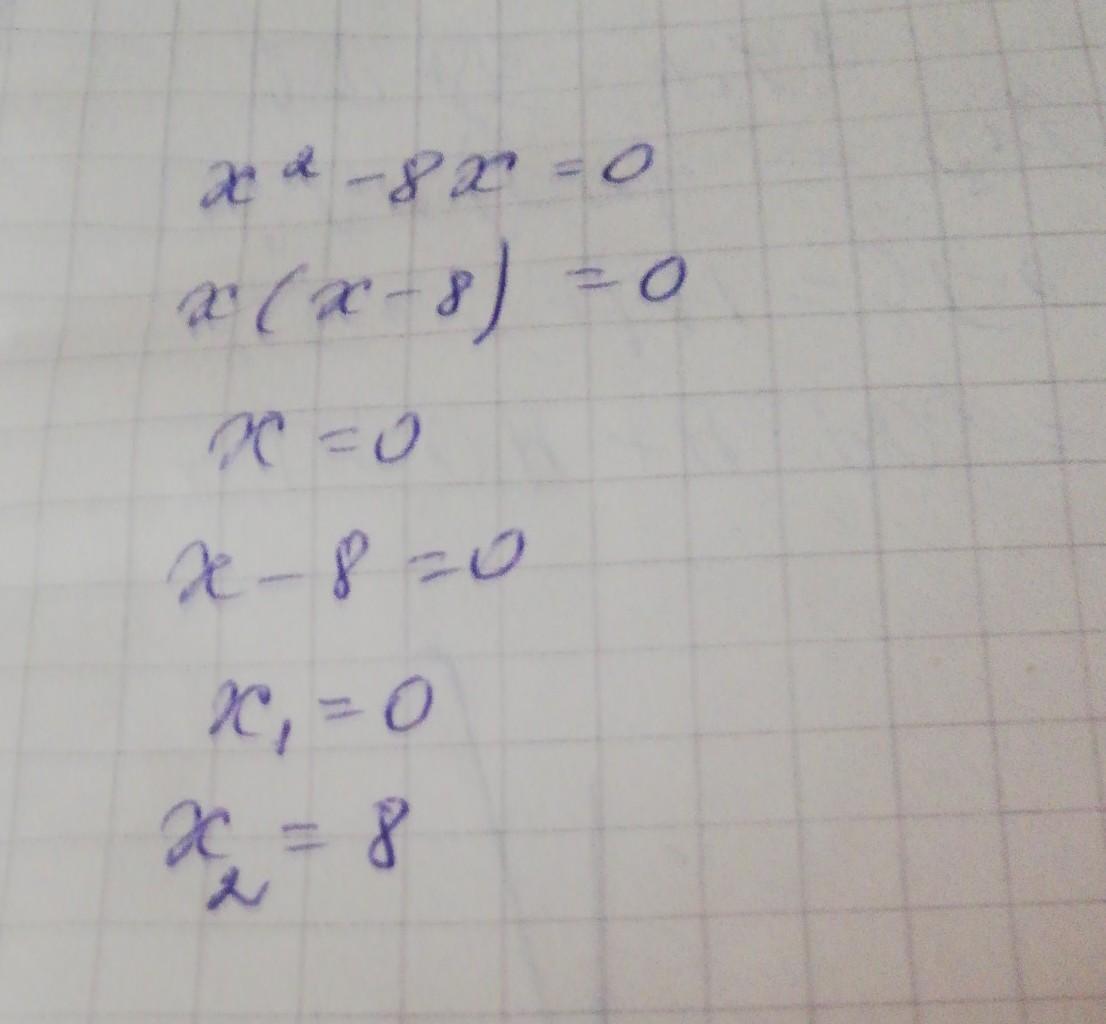 x² - 8x = 0
x(x - 8) = 0
x = 0
x - 8 = 0
x₁ = 0
x₂ = 8